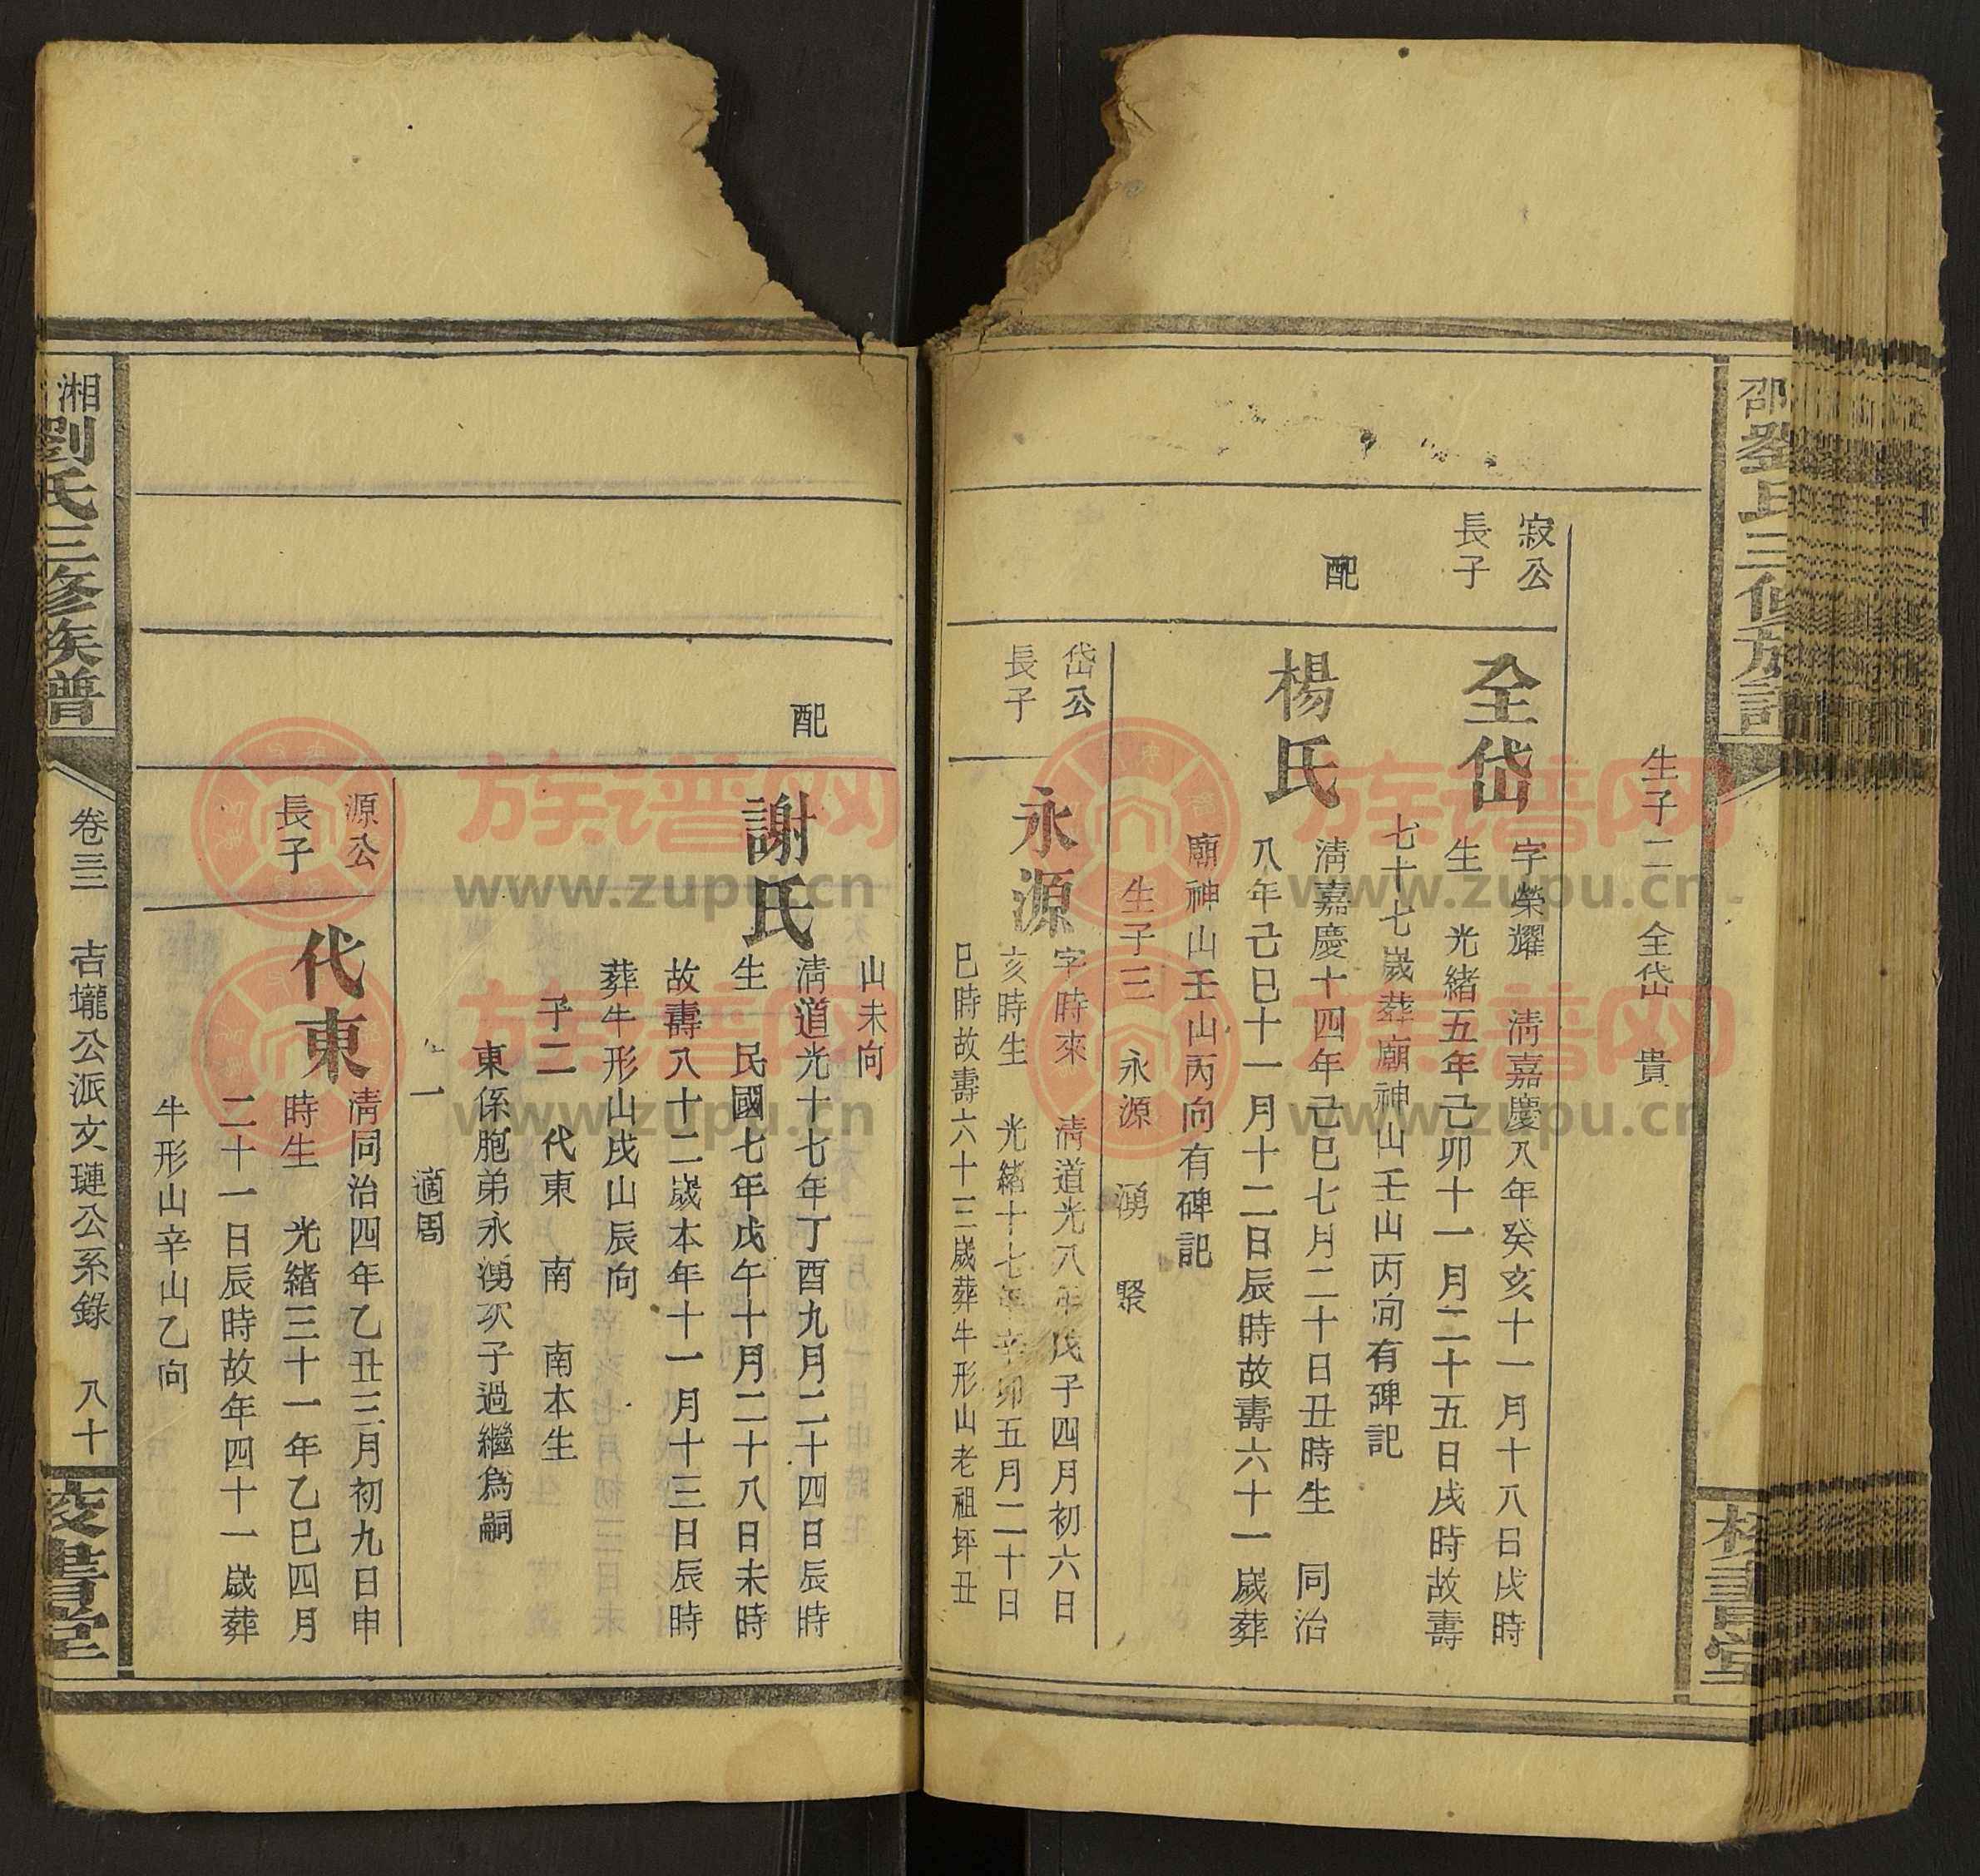 邵
劉氏三修族譜
生子二 全岱 貴
寂公
長子
全岱
字榮耀 淸嘉慶八年癸亥十一月十八日戌時
生 光緒五年己卯十一月二十五日戌時故壽
七十七歲葬廟神山壬山丙向有碑記
配
楊氏
淸嘉慶十四年己巳七月二十日丑時生 同治
八年己巳十一月十二日辰時故壽六十一歲葬
廟神山壬山丙向有碑記
生子三 永源 湧 聚
岱公
長子
永源
字時來 淸道光八年戊子四月初六日
亥時生 光緒十七年辛卯五月二十日
巳時故壽六十三歲葬牛形山老祖坪丑
山未向
配
謝氏
淸道光十七年丁酉九月二十四日辰時
生 民國七年戊午十月二十八日未時
故壽八十二歲本年十一月十三日辰時
葬牛形山戌山辰向
子二 代東 南 南本生
東係胞弟永湧次子過繼爲嗣
生一 適周
源公
長子
代東
淸同治四年乙丑三月初九日申
時生 光緒三十一年乙巳四月
二十一日辰時故年四十一歲葬
牛形山辛山乙向
湘
劉氏三修族譜
卷三 吉壠公派文璉公系錄 八十
校書堂
族谱网
www.zupu.cn
族谱网
www.zupu.cn
族谱网
www.zupu.cn
族谱网
www.zupu.cn